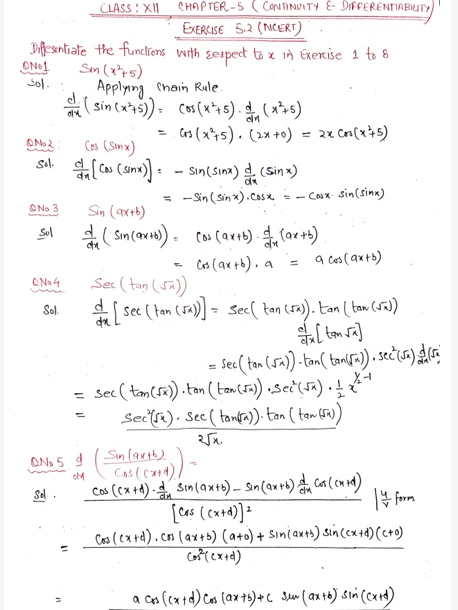 CLASS: XII CHAPTER-5 (CONTINUITY & DIFFERENTIABILITY)
EXERCISE 5.2 (NCERT)
Differentiate the functions with respect to x in Exercise 1 to 8
QNo1 Sin (x²+5)
Sol. Applying Chain Rule
d/dx (sin (x²+5)) = Cos (x²+5) . d/dx (x²+5)
= Cos (x²+5) . (2x+0) = 2x Cos(x²+5)
QNo2 Cos (Sinx)
Sol. d/dx [Cos (sinx)] = - Sin(sinx) d/dx (Sin x)
= -Sin (sinx) . Cosx = - Cosx . sin(sinx)
QNo 3 Sin (ax+b)
Sol d/dx (Sin(ax+b)) = Cos (ax+b) . d/dx (ax+b)
= Cos (ax+b) . a = a Cos (ax+b)
QNo4 Sec (tan (√x))
Sol. d/dx [Sec (tan (√x))] = Sec( tan (√x)) . tan ( tan (√x))
d/dx [tan √x]
= Sec (tan (√x)) . tan (tan(√x)) . Sec²(√x) d/dx (√x
= sec (tan(√x)) . tan (tan(√x)) . Sec²(√x) . 1/2 x^(1/2-1)
= Sec²(√x) . Sec (tan(√x)) . tan (tan (√x))
2√x.
QNo 5 d/dx (Sin(ax+b)/Cos(cx+d)) =
Sol. Cos (cx+d) . d/dx Sin(ax+b) - Sin(ax+b) d/dx Cos (cx+d)
[Cos (cx+d)]² | u/v form
= Cos (cx+d) . Cos (ax+b) (a+0) + Sin(ax+b) Sin(cx+d)(c+0)
Cos²(cx+d)
= a Cos (cx+d) Cos (ax+b) + c Sin (ax+b) Sin (cx+d)